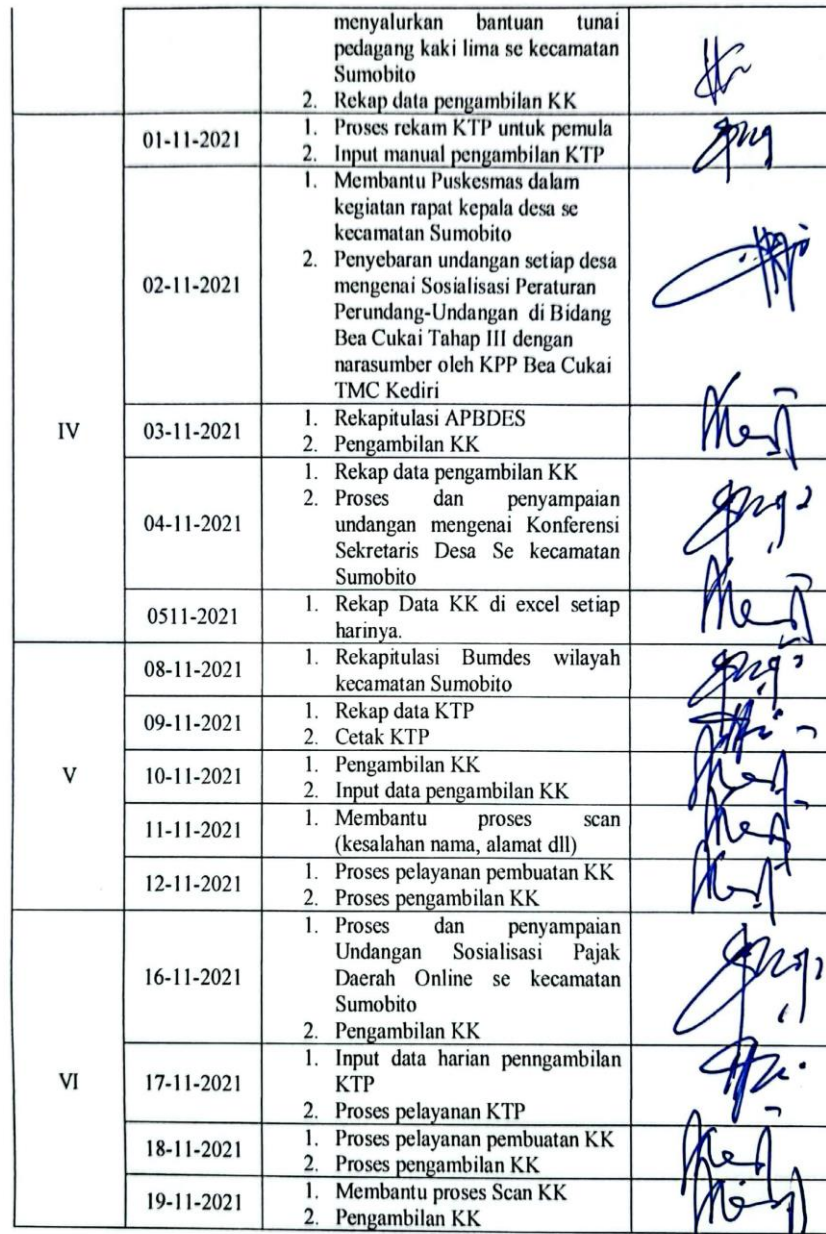 menyalurkan bantuan tunai
pedagang kaki lima se kecamatan
Sumobito
2. Rekap data pengambilan KK
IV
01-11-2021
1. Proses rekam KTP untuk pemula
2. Input manual pengambilan KTP
02-11-2021
1. Membantu Puskesmas dalam
kegiatan rapat kepala desa se
kecamatan Sumobito
2. Penyebaran undangan setiap desa
mengenai Sosialisasi Peraturan
Perundang-Undangan di Bidang
Bea Cukai Tahap III dengan
narasumber oleh KPP Bea Cukai
TMC Kediri
03-11-2021
1. Rekapitulasi APBDES
2. Pengambilan KK
04-11-2021
1. Rekap data pengambilan KK
2. Proses dan penyampaian
undangan mengenai Konferensi
Sekretaris Desa Se kecamatan
Sumobito
0511-2021
1. Rekap Data KK di excel setiap
harinya.
V
08-11-2021
1. Rekapitulasi Bumdes wilayah
kecamatan Sumobito
09-11-2021
1. Rekap data KTP
2. Cetak KTP
10-11-2021
1. Pengambilan KK
2. Input data pengambilan KK
11-11-2021
1. Membantu proses scan
(kesalahan nama, alamat dll)
12-11-2021
1. Proses pelayanan pembuatan KK
2. Proses pengambilan KK
VI
16-11-2021
1. Proses dan penyampaian
Undangan Sosialisasi Pajak
Daerah Online se kecamatan
Sumobito
2. Pengambilan KK
17-11-2021
1. Input data harian penngambilan
KTP
2. Proses pelayanan KTP
18-11-2021
1. Proses pelayanan pembuatan KK
2. Proses pengambilan KK
19-11-2021
1. Membantu proses Scan KK
2. Pengambilan KK